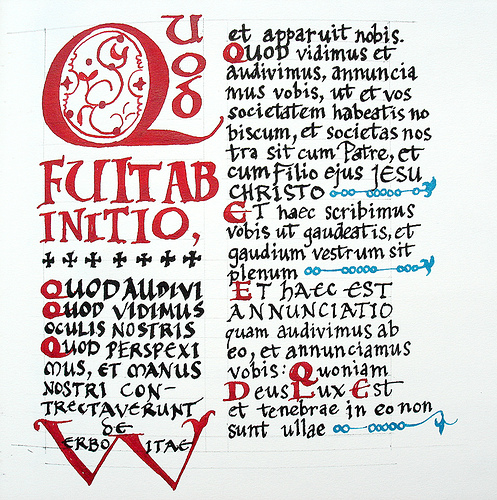 Quod
FUIT AB
INITIO,
QUOD AUDIVI
QUOD VIDIMUS
OCULIS NOSTRIS
QUOD PERSPEXI
MUS, ET MANUS
NOSTRI CON-
TRECTAVERUNT
DE
VERBO VITAE
et apparuit nobis.
QUOD vidimus et
audivimus, annuncia
mus vobis, ut et vos
societatem habeatis no
biscum, et societas nos
tra sit cum Patre, et
cum Filio ejus JESU
CHRISTO
ET haec scribimus
vobis ut gaudeatis, et
gaudium vestrum sit
plenum
ET hAEC EST
ANNUNCIATIO
quam audivimus ab
eo, et annunciamus
vobis: Quoniam
Deus Lux Est
et tenebrae in eo non
sunt ullae